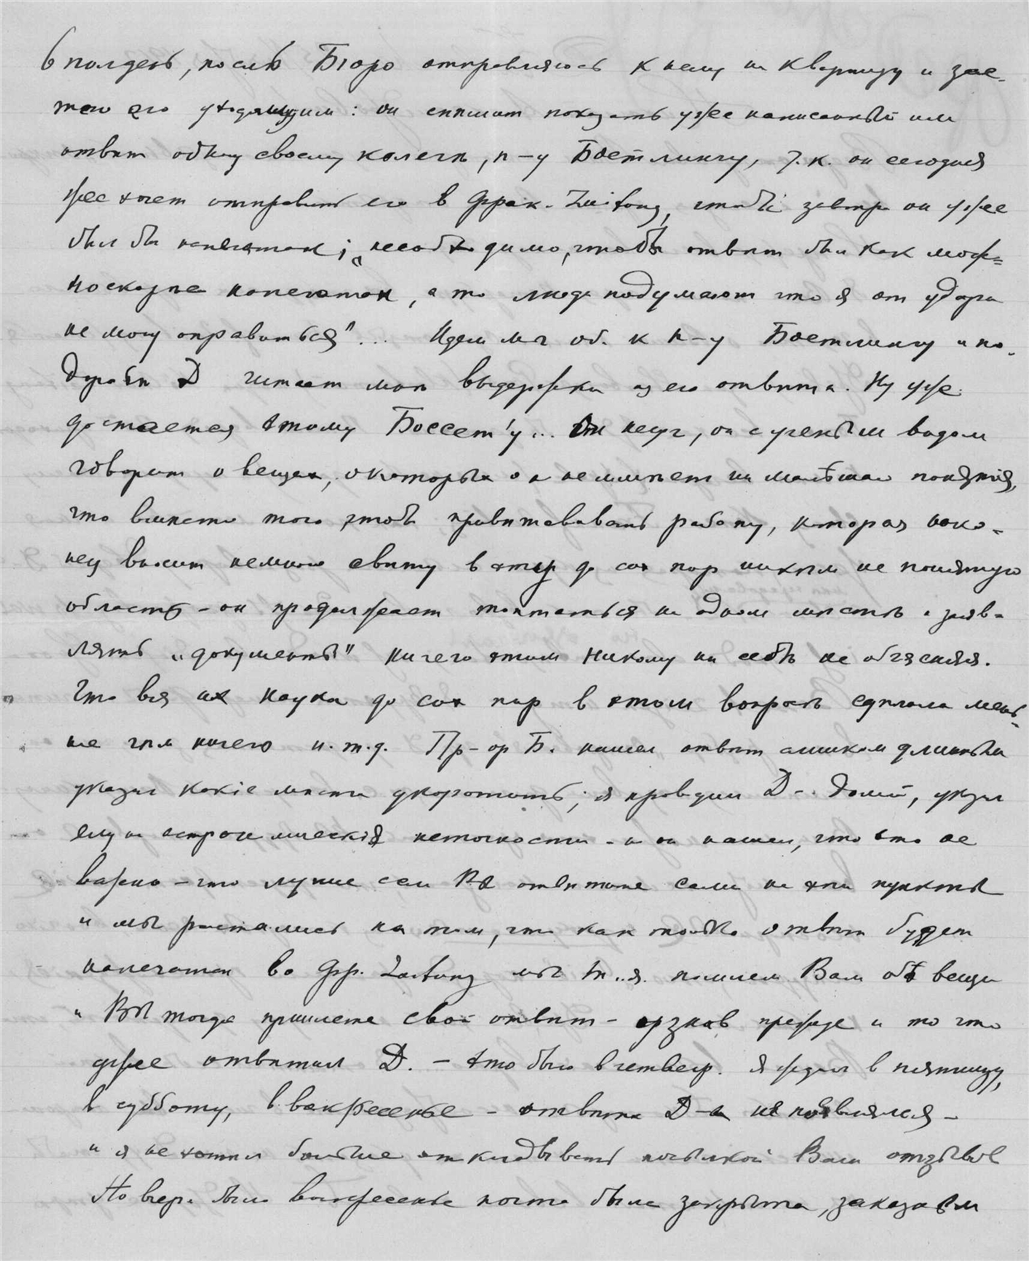 В полдень, послѣ Бюро отправляюсь к нему на квартиру и зас-
таю его уходящим: он спѣшит показать уже написанный им
отвѣт одному своему колегѣ, п-у Бестлингу, т.к. он сегодня
же хочет отправить его в Франк. Zeitung, чтобы завтра он уже
был бы напечатан; „необходимо, чтобы отвѣт был как мож-
но скорѣе напечатан, а то люди подумают что я от удара
не могу оправиться"... Идем мы об. к п-у Бестлингу и по-
дороге D читает мнѣ выдержки из его отвѣта. Ну уже
достается этому Боссет'у... Он неуч, он с ученым видом
говорит о вещах, о которых он не имѣет ни малѣйшаго понятия,
что вмѣсто того чтоб привѣтствовать работу, которая нако-
нец вносит немного свѣту в эту до сих пор никѣм не понятную
область - он продолжает топтаться на одном мѣстѣ и заяв-
лять „документы" ничего этим никому ни себѣ не объясняя.
Что вся их наука до сих пор в этом вопросѣ сдѣлала мень-
ше чѣм ничего и.т.д. Пр-ор Б. нашел отвѣт слишком длинным
указал какіе мѣста укоротить; я проводил D. домой, указал
ему на астрономическия неточности - и он нашел, что это не
важно - что лучше если Вы отвѣтите сами на эти пункты
и мы растались на том, что как только отвѣт будет
напечатан во Фр. Zeitung мы Вам пошлем обѣ вещи
и Вы тогда пришлете свой отвѣт - узнав прежде и то что
уже отвѣтил D. - это было в четверг. Я ждал в пятницу,
в субботу, в воскресенье - отвѣта D-а не появлялся -
и я не хотѣл больше откладывать посылкой Вам отзывов
Но вчера было воскресенье почта была закрыта, заказным